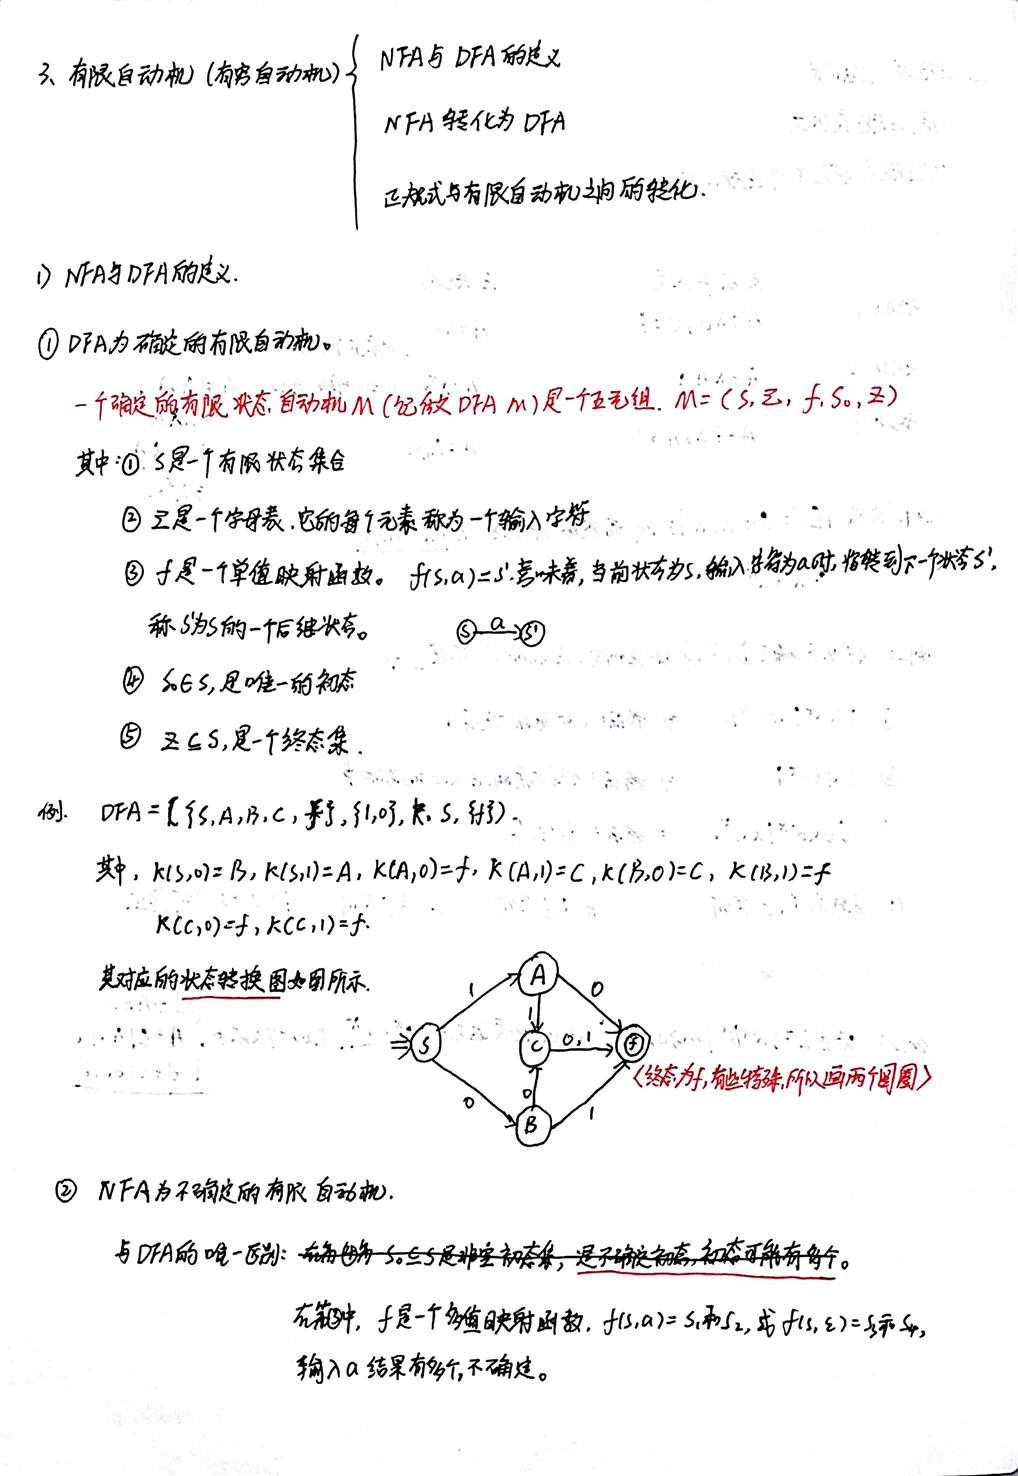 3、有限自动机 (有穷自动机)
NFA与DFA的定义
NFA 转化为 DFA
正规式与有限自动机之间的转化.
1) NFA与DFA的定义.
① DFA为确定的有限自动机。
一个确定的有限状态自动机M (记做DFA M) 是一个五元组. M=(S,Σ, f, S₀, Z)
其中:① S是一个有限状态集合
② Σ是一个字母表,它的每个元素称为一个输入字符
③ f是一个单值映射函数。 f(S,a)=S'.意味着,当前状态为S,输入字符为a时,将转到下一个状态S',
称S'为S的一个后继状态。
S a S'
④ S₀∈S,是唯一的初态
⑤ Z⊆S,是一个终态集.
例. DFA=({S,A,B,C,f},{1,0},K,S,{f}).
其中, K(S,0)=B, K(S,1)=A, K(A,0)=f, K(A,1)=C, K(B,0)=C, K(B,1)=f
K(C,0)=f, K(C,1)=f.
其对应的状态转换图如图所示.
A
1 0
1
S C 0,1 f
(终态为f,有些特殊,所以画两个圆圈)
0 0 1
B
② NFA为不确定的有限自动机.
与DFA的唯一区别: S₀⊆S是非空初态集, 是不确定初态,初态可能有多个。
在第③中, f是一个多值映射函数. f(S,a)=S₁和S₂, 或f(S,ε)=S₃和S₄,
输入a结果有多个,不确定。